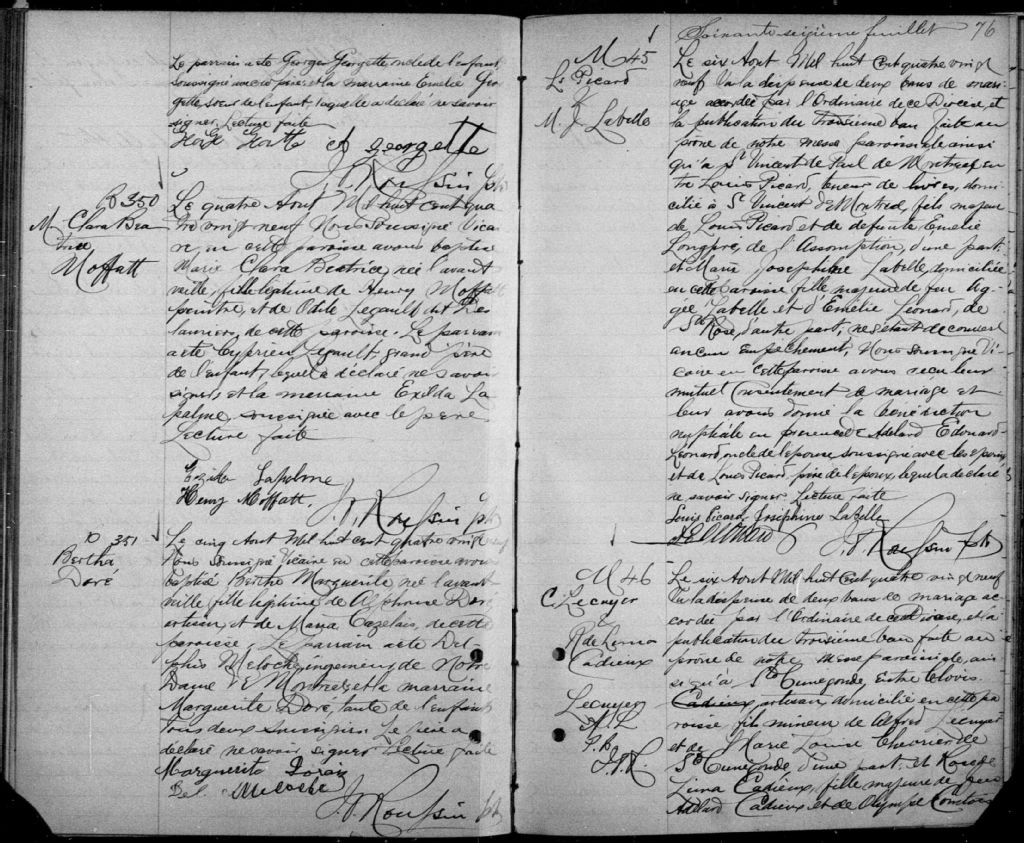 Le parrain a été Georges Georgette oncle de l'enfant
soussigné avec le père et la marraine Emelie Geor
gette soeur de l'enfant, laquelle a déclaré ne savoir
signer. Lecture faite
A Georgette
J. A. Roussin ptr
B 350
M Clara Bea
trice
Moffatt
Le quatre Aout Mil huit cent qua
tre vingt neuf Nous soussigné Vicai
re en cette paroisse avons baptisé
Marie Clara Beatrice, née l'avant
veille, fille légitime de Henry Moffatt
peintre, et de Odile Legault dit Des
lauriers, de cette paroisse. Le parrain
a été Cyprien Legault, grand père
de l'enfant, lequel a déclaré ne savoir
signer, et la marraine Exilda La
palme, soussignée avec le père
Lecture faite
Exilda Lapalme
Henry Moffatt
J. A. Roussin ptr
B 351
Bertha
Doré
Le cinq Aout Mil huit cent quatre vingt neuf
Nous soussigné Vicaire en cette paroisse avons
baptisé Bertha Marguerite née l'avant
veille, fille légitime de Alphonse Doré
artisan, et de Maria Cazelais, de cette
paroisse. Le parrain a été Del
phis Meloche, ingénieur, de Notre
Dame de Montréal, et la marraine
Marguerite Doré, tante de l'enfant
tous deux soussignés. Le père a
déclaré ne savoir signer Lecture faite
Marguerite Doré
Del. Meloche
J. A. Roussin ptr
Soixante seizième feuillet 76
M 45
Ls Picard
&
M. J. Labelle
Le six Aout Mil huit cent quatre vingt
neuf Vu la dispense de deux bans de mari
age accordée par l'Ordinaire de ce Diocèse, et
la publication du troisième ban faite au
prône de notre messe paroissiale ainsi
qu'à St Vincent de Paul de Montréal, en
tre Louis Picard, teneur de livres, domi
cilié à St Vincent de Montréal, fils majeur
de Louis Picard et de défunte Emelie
Longpré, de l'Assomption, d'une part
et Marie Josephine Labelle, domiciliée
en cette paroisse fille majeure de feu Ag
gée Labelle et d'Emélie Léonard, de
Ste Rose, d'autre part, ne s'étant découvert
aucun empêchement, Nous soussigné Vi
caire en cette paroisse avons reçu leur
mutuel consentement de mariage et
leur avons donné la bénédiction
nuptiale en présence de Adélard Edouard
Léonard, oncle de l'épouse, soussigné avec les époux,
et de Louis Picard, père de l'époux, lequel a déclaré
ne savoir signer. Lecture faite
Louis Picard Josephine Labelle
A E Léonard
J. A. Roussin ptr
M 46
C. Lecuyer
&
R de Lima
Cadieux
Lecuyer
Le six Aout Mil huit cent quatre vingt neuf
Vu la dispense de deux bans de mariage ac
cordée par l'Ordinaire de ce Diocèse, et la
publication du troisième ban faite au
prône de notre messe paroissiale, ain
si qu'à Ste Cunegonde, entre Clovis
Cadieux, artisan domicilié en cette pa
roisse, fils mineur de Alfred Lecuyer
et de Marie Louise Chevrier de
Ste Cunegonde, d'une part, et Rose de
Lima Cadieux, fille majeure de feu
Adélard Cadieux et de Olympe Comtois